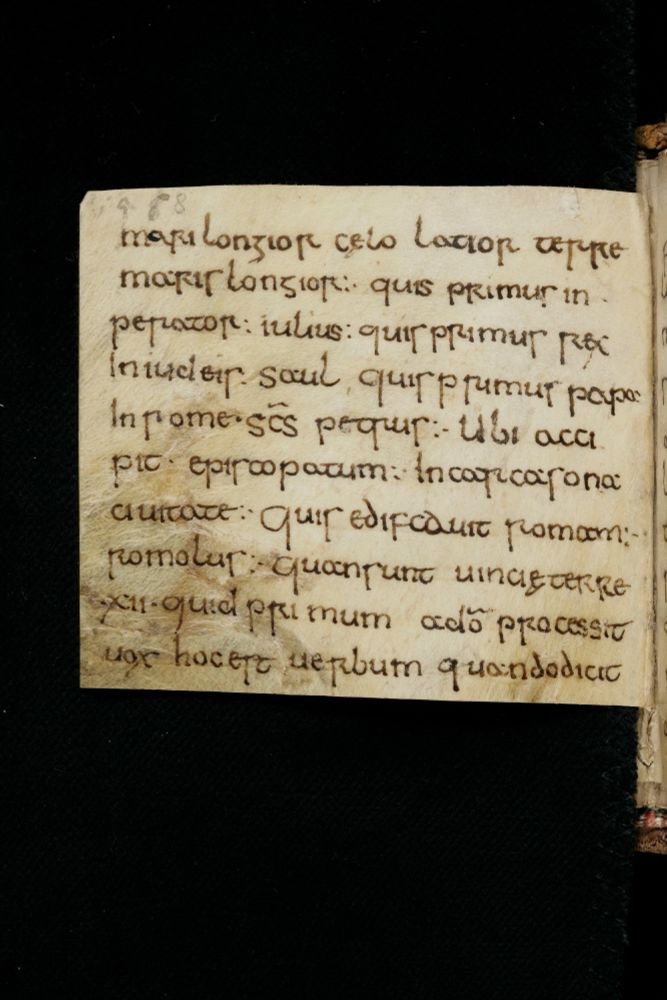 mari longior cęlo latior terre
maris longior:· quis primus in
perator: iulius: quis primus rex
In iudeis. Saul. Quis primus papa
In rome· Sc̄s petrus:· Ubi acci
pit· episcopatum:· In carcasona
ciuitate:· Quis edifcauit romam:·
romolus:· Quan sunt uincię terre
xii· quid primum a dō processit
uox hoc est uerbum quando dicit